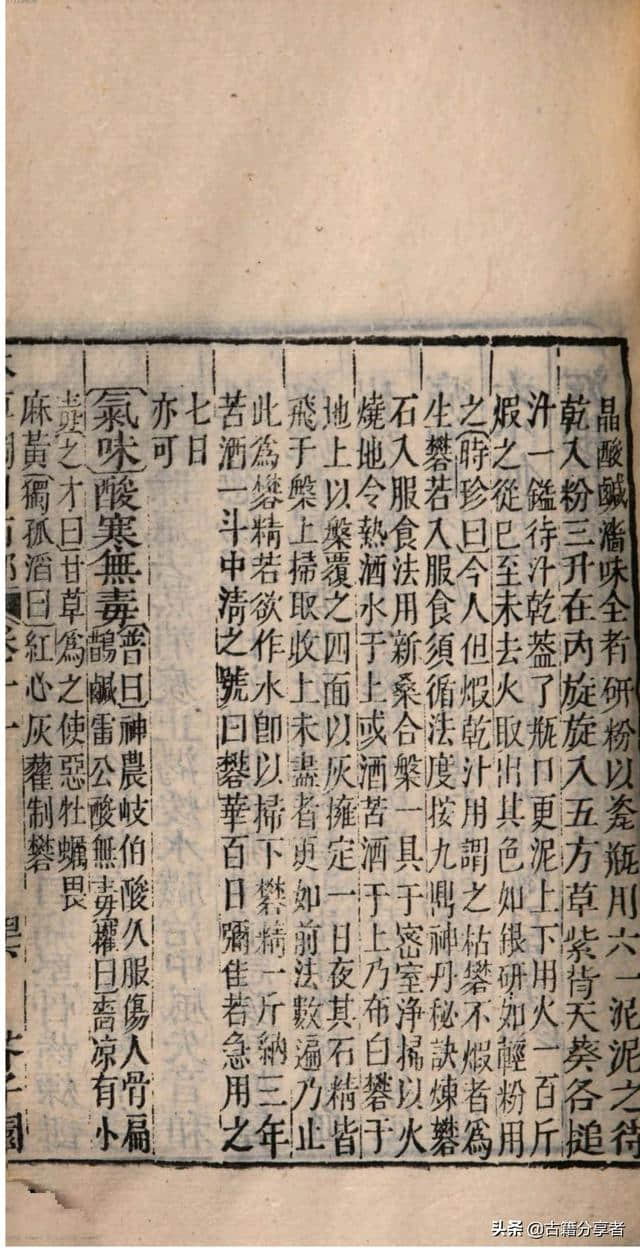 晶酸鹹濇味全者研粉以瓷瓶用六一泥泥之待
乾入粉三升在內旋旋入五方草紫背天葵各搥
汁一鎰待汁乾蓋了瓶口更泥上下用火一百斤
煆之從巳至未去火取出其色如銀研如輕粉用
之〔時珍曰〕今人但煆乾汁用謂之枯礬不煆者爲
生礬若入服食須循法度按九鼎神丹秘訣煉礬
石入服食法用新桑合槃一具于密室淨掃以火
燒地令熱洒水于上或洒苦酒于上乃布白礬于
地上以槃覆之四面以灰擁定一日夜其石精皆
飛于槃上掃取收上未盡者更如前法數遍乃止
此爲礬精若欲作水卽以掃下礬精一斤納三年
苦酒一斗中清之號曰礬華百日彌佳若急用之
七日
亦可
〔氣味〕酸寒無毒〔普曰〕神農岐伯酸久服傷人骨扁
鵲鹹雷公酸無毒權曰濇凉有小
毒〔之才曰〕甘草爲之使惡牡蠣畏
麻黃〔獨孤滔曰〕紅心灰藋制礬
石部 卷十一 芥子園
头条 @古籍分享者